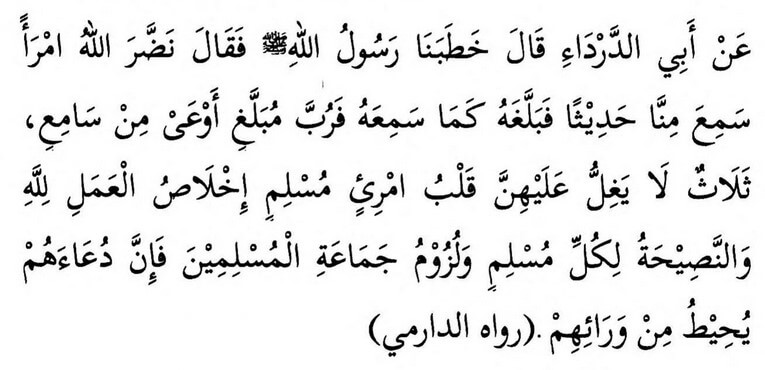 عَنْ أَبِي الدَّرْدَاءِ قَالَ خَطَبَنَا رَسُولُ اللهِ ﷺ فَقَالَ نَضَّرَ اللهُ امْرَأً
سَمِعَ مِنَّا حَدِيْثًا فَبَلَّغَهُ كَمَا سَمِعَهُ فَرُبَّ مُبَلَّغٍ أَوْعَىْ مِنْ سَامِعٍ،
ثَلَاثٌ لَا يَغِلُّ عَلَيْهِنَّ قَلْبُ امْرِئٍ مُسْلِمٍ إِخْلَاصُ الْعَمَلِ لِلَّهِ
وَالنَّصِيْحَةُ لِكُلِّ مُسْلِمٍ وَلُزُوْمُ جَمَاعَةِ الْمُسْلِمِيْنَ فَإِنَّ دُعَاءَهُمْ
يُحِيْطُ مِنْ وَرَائِهِمْ .(رواه الدارمي)